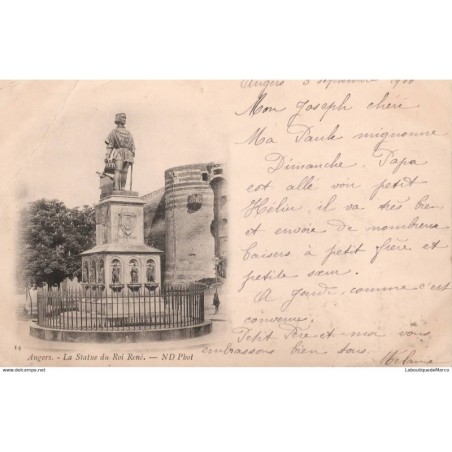 Angers 3 septembre 1900
Mon Joseph chéri
Ma Paule mignonne
Dimanche. Papa
est allé voir petit
Hélin, il va très bien
et envoie de nombreux
baisers à petit frère et
petite sœur.
A jeudi comme c'est
convenu.
Petit Père et moi vous
embrassons bien tous.
Mélanie
14 Angers. - La Statue du Roi René. — ND Phot
LaboutiquedeMarco